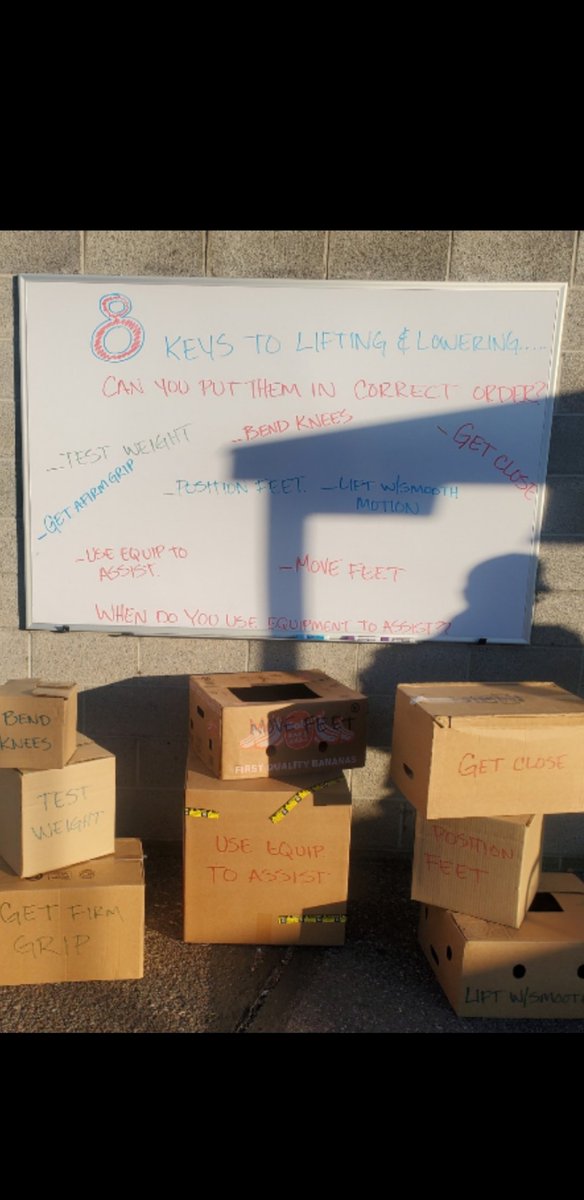 8 KEYS TO LIFTING & LOWERING.....
CAN YOU PUT THEM IN CORRECT ORDER?
- TEST WEIGHT
- BEND KNEES
- GET CLOSE
- GET A FIRM GRIP
- POSITION FEET.
- LIFT W/SMOOTH
MOTION
- USE EQUIP TO
ASSIST.
- MOVE FEET
WHEN DO YOU USE EQUIPMENT TO ASSIST??
BEND
KNEES
TEST
WEIGHT
GET FIRM
GRIP
MOVE FEET
FIRST QUALITY BANANAS
USE EQUIP.
TO ASSIST
GET CLOSE
POSITION
FEET
LIFT W/SMOOTH